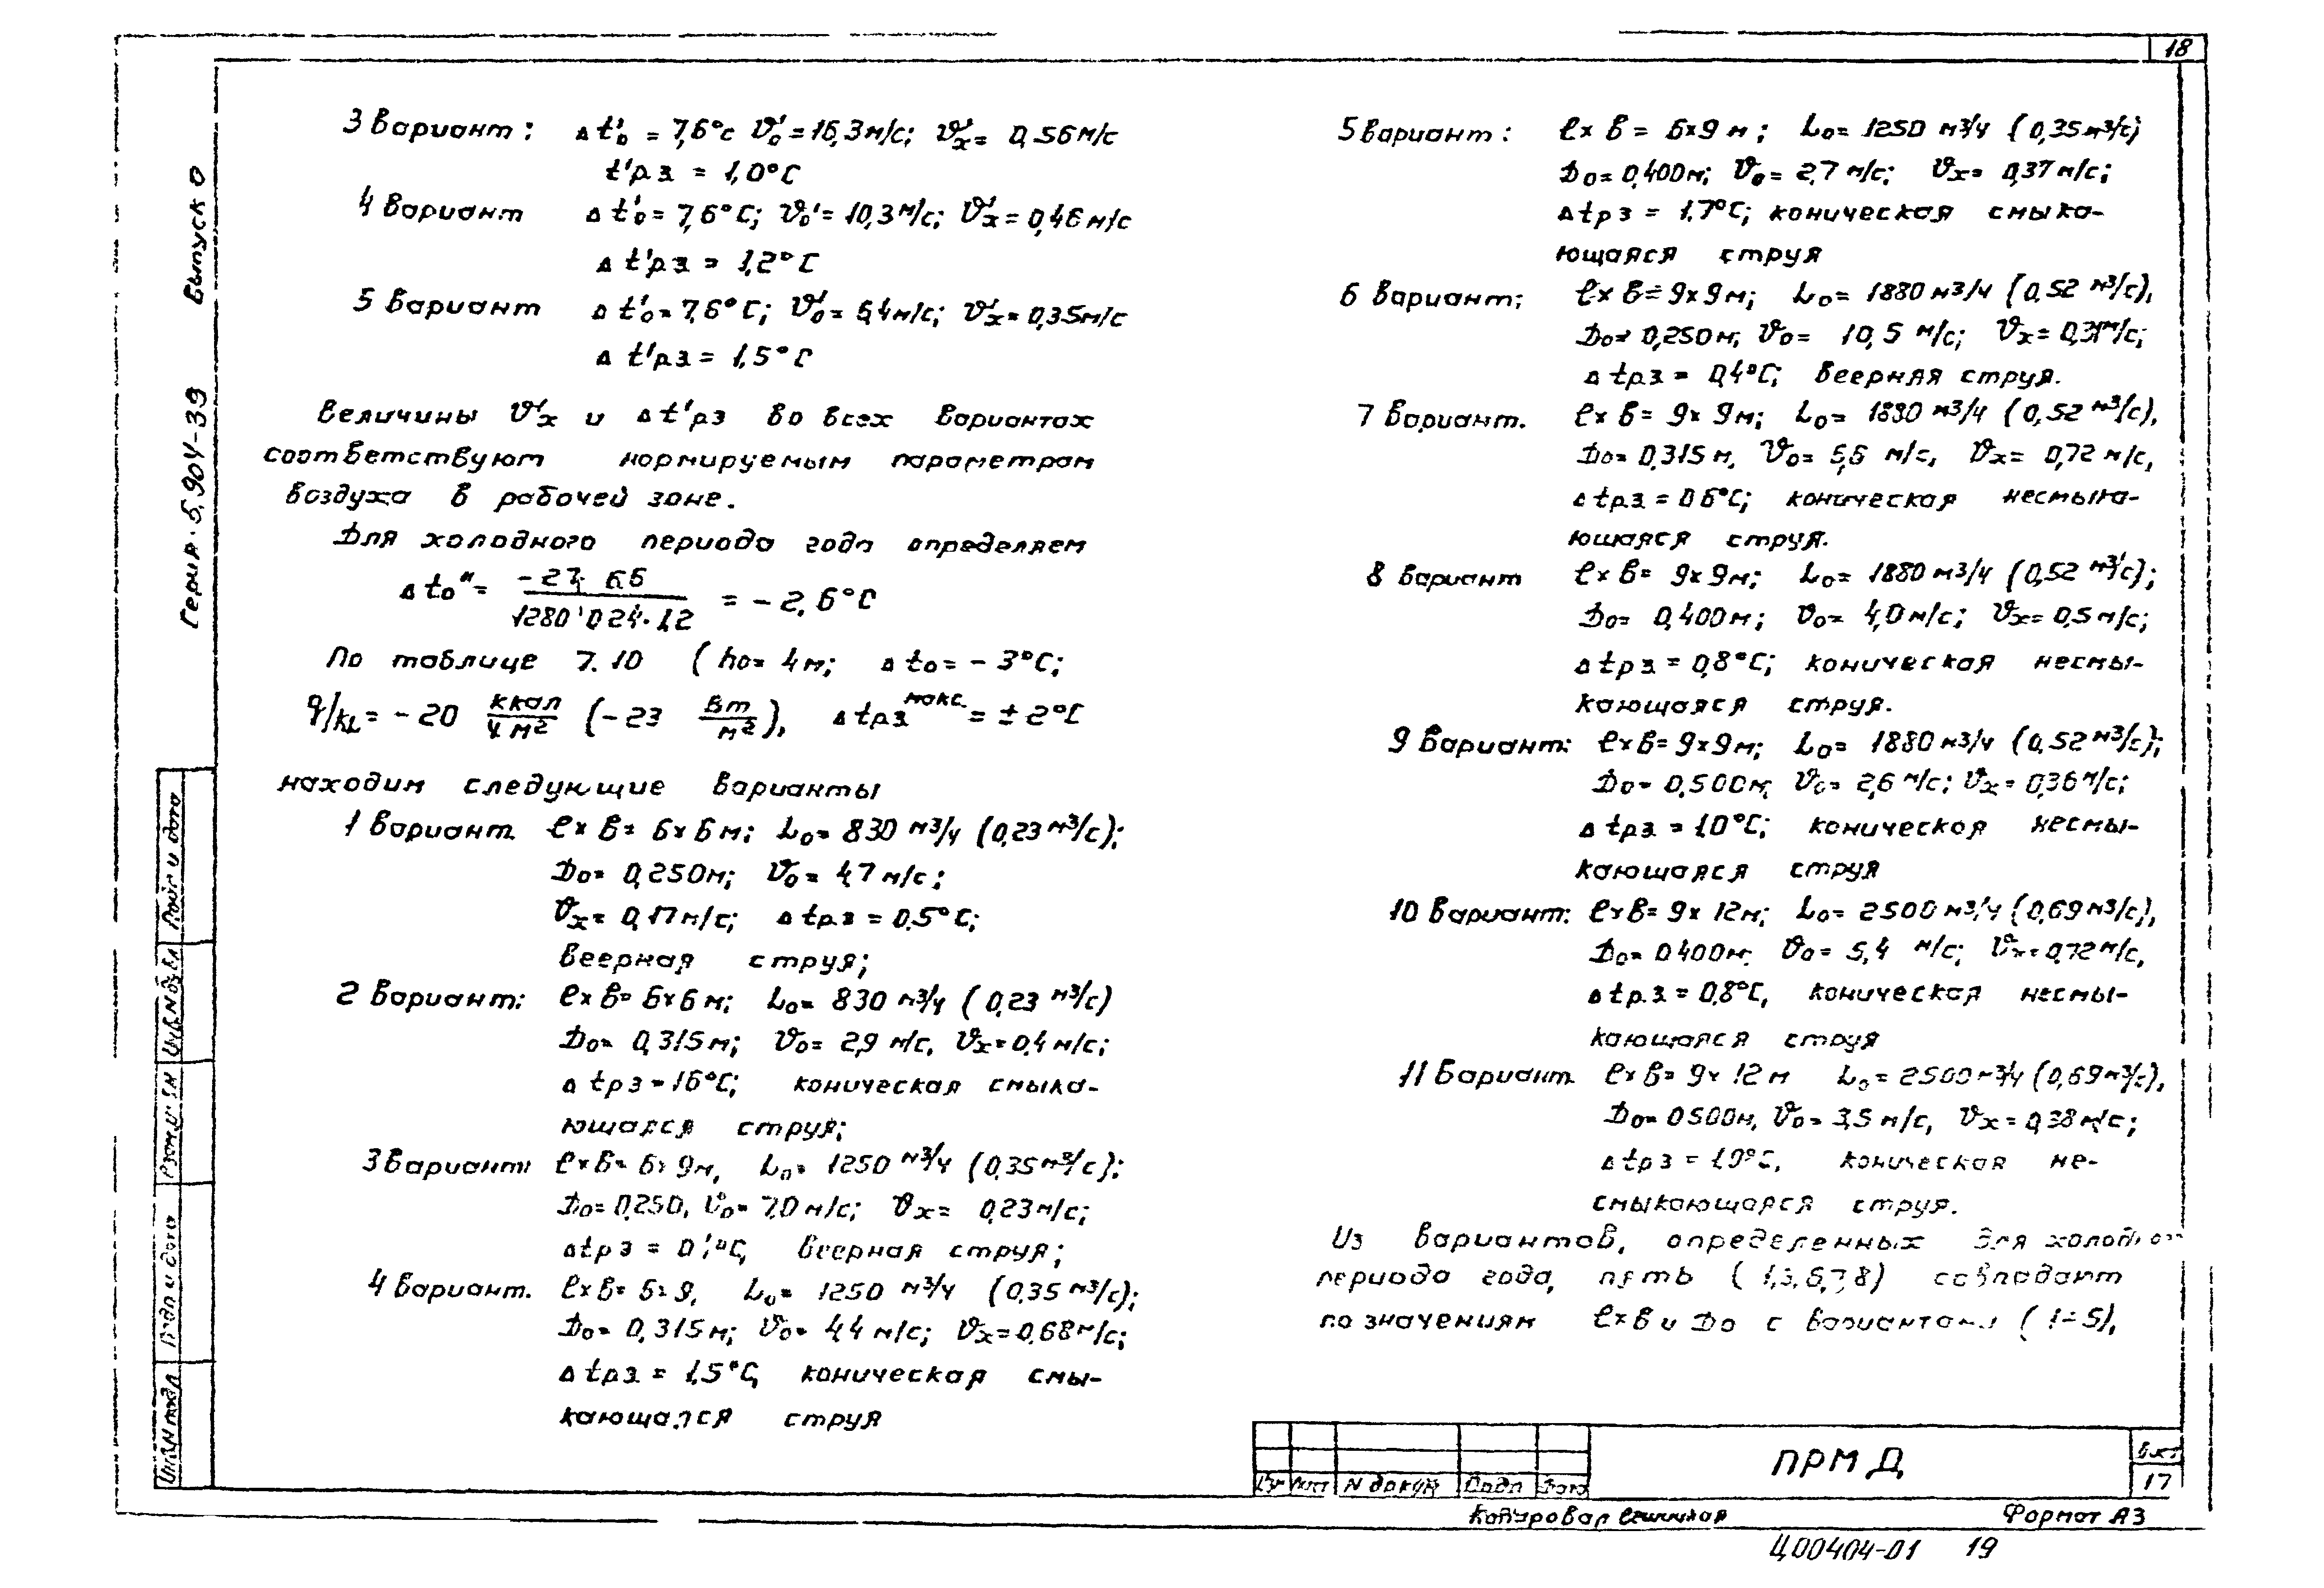 18
Серия 5.904-39 Выпуск 0
3 Вариант: Δt'о = 7,6°с ϑ'о = 16,3 м/с; ϑ'х = 0,56 м/с
t'рз = 1,0°С
4 Вариант Δt'о = 7,6°С; ϑо' = 10,3 м/с; ϑ'х = 0,46 м/с
Δt'рз = 1,2°С
5 Вариант Δt'о = 7,6°С; ϑ'о = 6,4 м/с; ϑ'х = 0,35 м/с
Δt'рз = 1,5°С
Величины ϑ'х и Δt'рз во всех вариантах
соответствуют нормируемым параметрам
воздуха в рабочей зоне.
Для холодного периода года определяем
Δtо" = -27· 66 / 1280·0,24·1,2 = -2,6°С
По таблице 7.10 (hо= 4м; Δtо= -3°С;
q/kL = -20 ккал/ч м² (-23 Вт/м²), Δtрз макс. = ±2°С
находим следующие варианты
1 Вариант. ℓхв= 6х6м; Lо= 830 м³/ч (0,23 м³/с);
Dо= 0,250м; ϑо = 4,7 м/с;
ϑх= 0,17м/с; Δtрз = 0,5°С;
Веерная струя;
2 Вариант: ℓхв= 6х6м; Lо= 830 м³/ч (0,23 м³/с)
Dо= 0,315м; ϑо= 2,9 м/с, ϑх=0,4 м/с;
Δtрз = 1,6°С; коническая смыка-
ющаяся струя;
3 Вариант: ℓхв= 6х9м, Lо= 1250 м³/ч (0,35 м³/с);
Dо= 0,250, ϑо= 7,0 м/с; ϑх= 0,23 м/с;
Δtрз = °С, Веерная струя;
4 Вариант. ℓхв= 6х9, Lо= 1250 м³/ч (0,35 м³/с);
Dо= 0,315м; ϑо= 4,4 м/с; ϑх=0,68 м/с;
Δtрз = 1,5°С, коническая смы-
кающаяся струя
5 Вариант: ℓхв= 6х9 м; Lо= 1250 м³/ч (0,35 м³/с)
Dо= 0,400м; ϑо= 2,7 м/с; ϑх= 0,37 м/с;
Δtрз = 1,7°С; коническая смыка-
ющаяся струя
6 Вариант; ℓхв= 9х9м; Lо= 1880 м³/ч (0,52 м³/с),
Dо= 0,250м, ϑо= 10,5 м/с; ϑх= 0,31м/с;
Δtрз = 0,4°С; Веерняя струя.
7 Вариант. ℓхв= 9х9м; Lо= 1880 м³/ч (0,52 м³/с),
Dо= 0,315м, ϑо= 6,6 м/с, ϑх= 0,72 м/с,
Δtрз = 0,6°С; коническая несмыка-
ющаяся струя.
8 Вариант ℓхв= 9х9м; Lо= 1880 м³/ч (0,52 м³/с);
Dо= 0,400м; ϑо= 4,0 м/с; ϑх= 0,5 м/с;
Δtрз = 0,8°С; коническая несмы-
кающаяся струя.
9 Вариант: ℓхв= 9х9м; Lо= 1880 м³/ч (0,52 м³/с);
Dо= 0,500м, ϑо= 2,6 м/с; ϑх= 0,36 м/с;
Δtрз = 1,0°С; коническая несмы-
кающаяся струя
10 Вариант: ℓхв= 9х12м; Lо= 2500 м³/ч (0,69 м³/с),
Dо= 0,400м. ϑо= 5,4 м/с; ϑх= 0,72 м/с,
Δtр.з = 0,8°С, коническая несмы-
кающаяся струя
11 Вариант. ℓхв= 9х12м Lо= 2500 м³/ч (0,69 м³/с),
Dо= 0,500м, ϑо= 3,5 м/с, ϑх= 0,38 м/с;
Δtрз = 1,0°С, коническая не-
смыкающаяся струя.
Из вариантов, определенных для холодного
периода года, пять (1,3,6,7,8) совпадают
по значениям ℓхв и Dо с вариантами (1÷5),
Инв.N подл Подп и дата Взам инв N Инв.N дубл Подп и дата
N докум Подп Дата
ПРМ Д
Лист
17
Копировал Формат А3
Ц00404-01 19